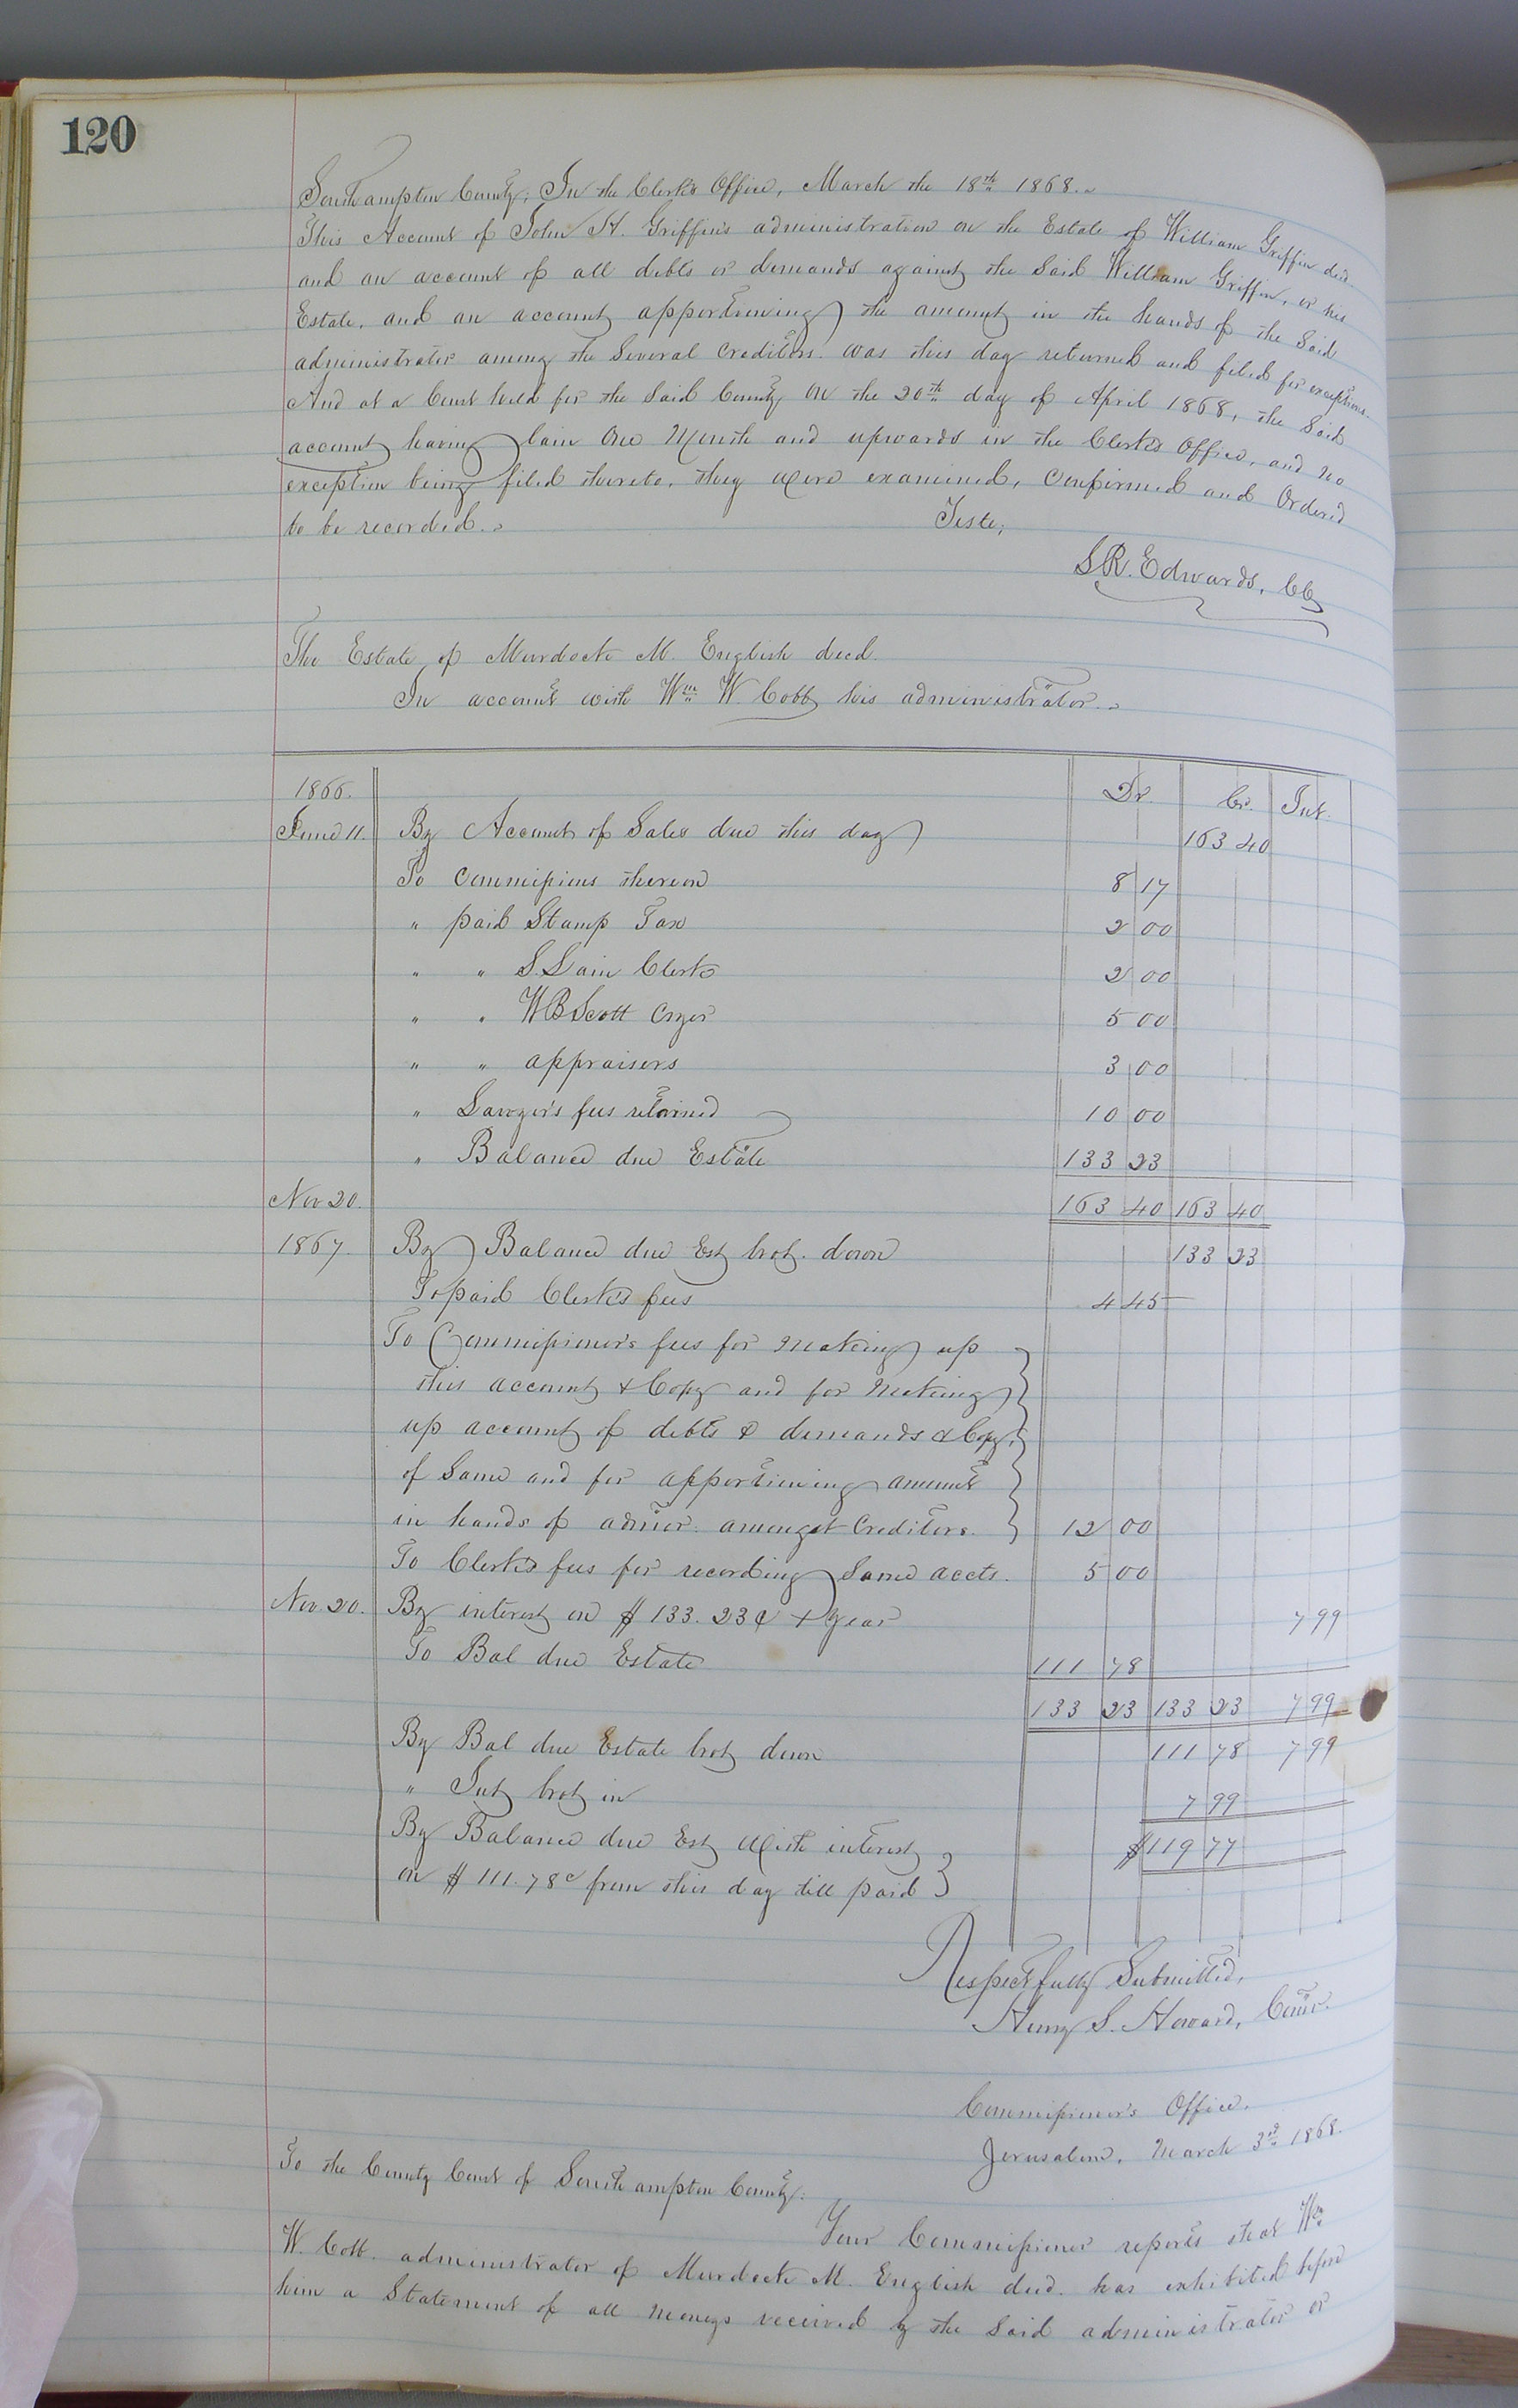 120
Southampton County; In the Clerk's Office, March the 18th 1868.
This Account of John H. Griffin's administration on the Estate of William Griffin decd.
and an account of all debts or demands against the said William Griffin, or his
Estate, and an account apportioning the amount in the hands of the said
administrator among the several creditors. was this day returned and filed for exceptions.
And at a Court held for the said County on the 20th day of April 1868, the said
account having lain one Month and upwards in the Clerk's office, and no
exception being filed thereto, they were examined, confirmed and Ordered
to be recorded. Teste,
S.R. Edwards, CC
The Estate of Murdock M. English decd.
In account with Wm W. Cobb his administrator.
1866. Dr. Cr. Int.
June 11. By Account of Sales due this day 163 40
To Commissions thereon 8 17
" paid Stamp Tax 2 00
" " S. Lain Clerk 2 00
" " W B Scott Cryer 5 00
" " appraisers 3 00
" Lawyer's fees retained 10 00
" Balance due Estate 133 23
Nov 20. 163 40 163 40
1867. By Balance due Est brot. down 133 23
To paid Clerk's fees 4 45
To Commissioner's fees for Making up
this account & Copy and for Making
up account of debts & demands & Copy,
of Same and for apportioning amount
in hands of admor. amongst Creditors. 12 00
To Clerk's fees for recording Same accts. 5 00
Nov 20. By interest on $133.23¢ + year 7 99
To Bal due Estate 111 78
133 23 133 23 7 99
By Bal due Estate brot down 111 78 7 99
" Int brot in 7 99
By Balance due Est with interest $119 77
on $111.78c from this day till paid
Respectfully Submitted,
Henry S. Howard, Comr.
Commissioner's Office.
Jerusalem, March 3rd 1868.
To the County Court of Southampton County:
Your Commissioner reports that Wm
W. Cobb. administrator of Murdock M. English decd. has exhibited before
him a Statement of all moneys received by the said administrator or